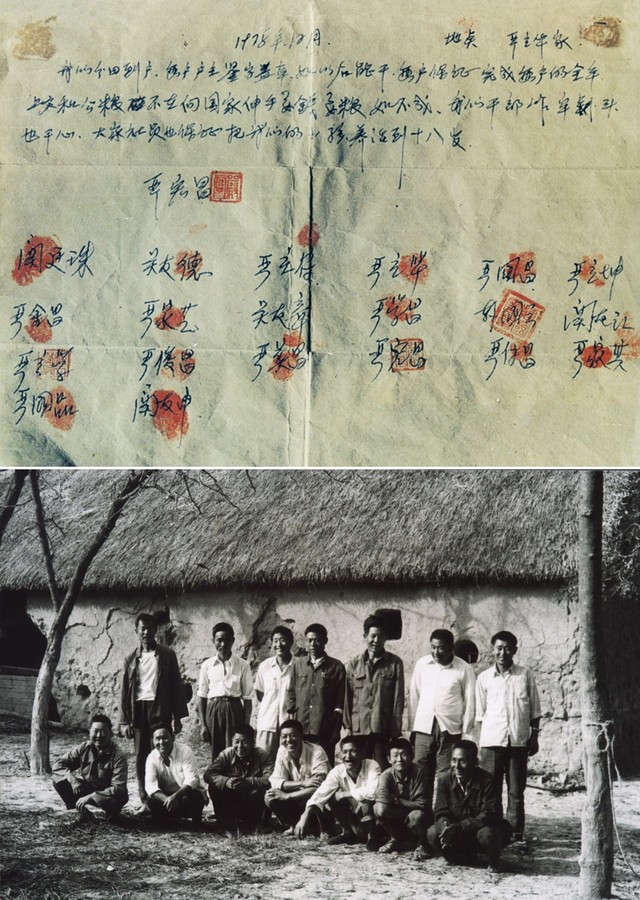 1978年12月. 地点 严立华家.
我们分田到户, 每户户主签字盖章, 如以后能干, 每户保证完成每户的全年
上交和公粮 不在向国家伸手要钱要粮 如不成, 我们干部作牢刹头
也干心, 大家社员也保证把我们的小孩养活到十八岁.
严宏昌
関廷珠 关友德 严立符 严立华 严国昌 严立坤
严金昌 严家芝 关友章 严学昌 韩国云 関友江
严立学 严俊昌 严美昌 严宏昌 严付昌 严家其
严国品 関友申